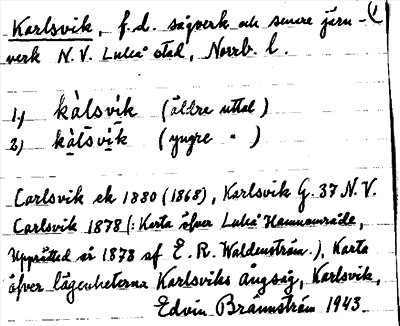 Karlsvik, f.d. sågverk och senare järn- 1
verk N.V. Luleå stad, Norrb. l.
1) kàlsvik (äldre uttal)
2) kàlsvik (yngre " )
Carlsvik ek 1880 (1868), Karlsvik G. 37 N.V.
Carlsvik 1878 (: Karta öfver Luleå Hamnområde,
Upprättad år 1878 af E. R. Waldenström.), Karta
öfver lägenheterna Karlsviks Ångsåg, Karlsvik,
Edvin Brännström 1943.